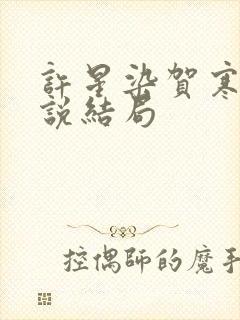 許星染賀寒
說結局
控偶師的魔手